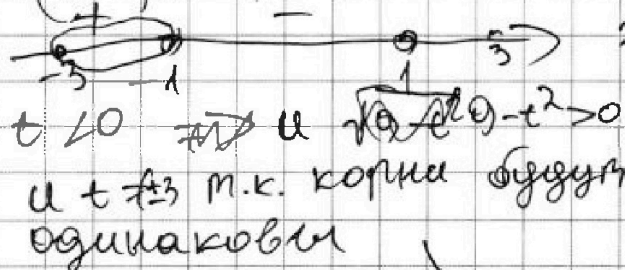 + −
-3 -1 1 3
t < 0 и 9 - t² > 0
и t ≠ ±3 т.к. корни будут
одинаковы